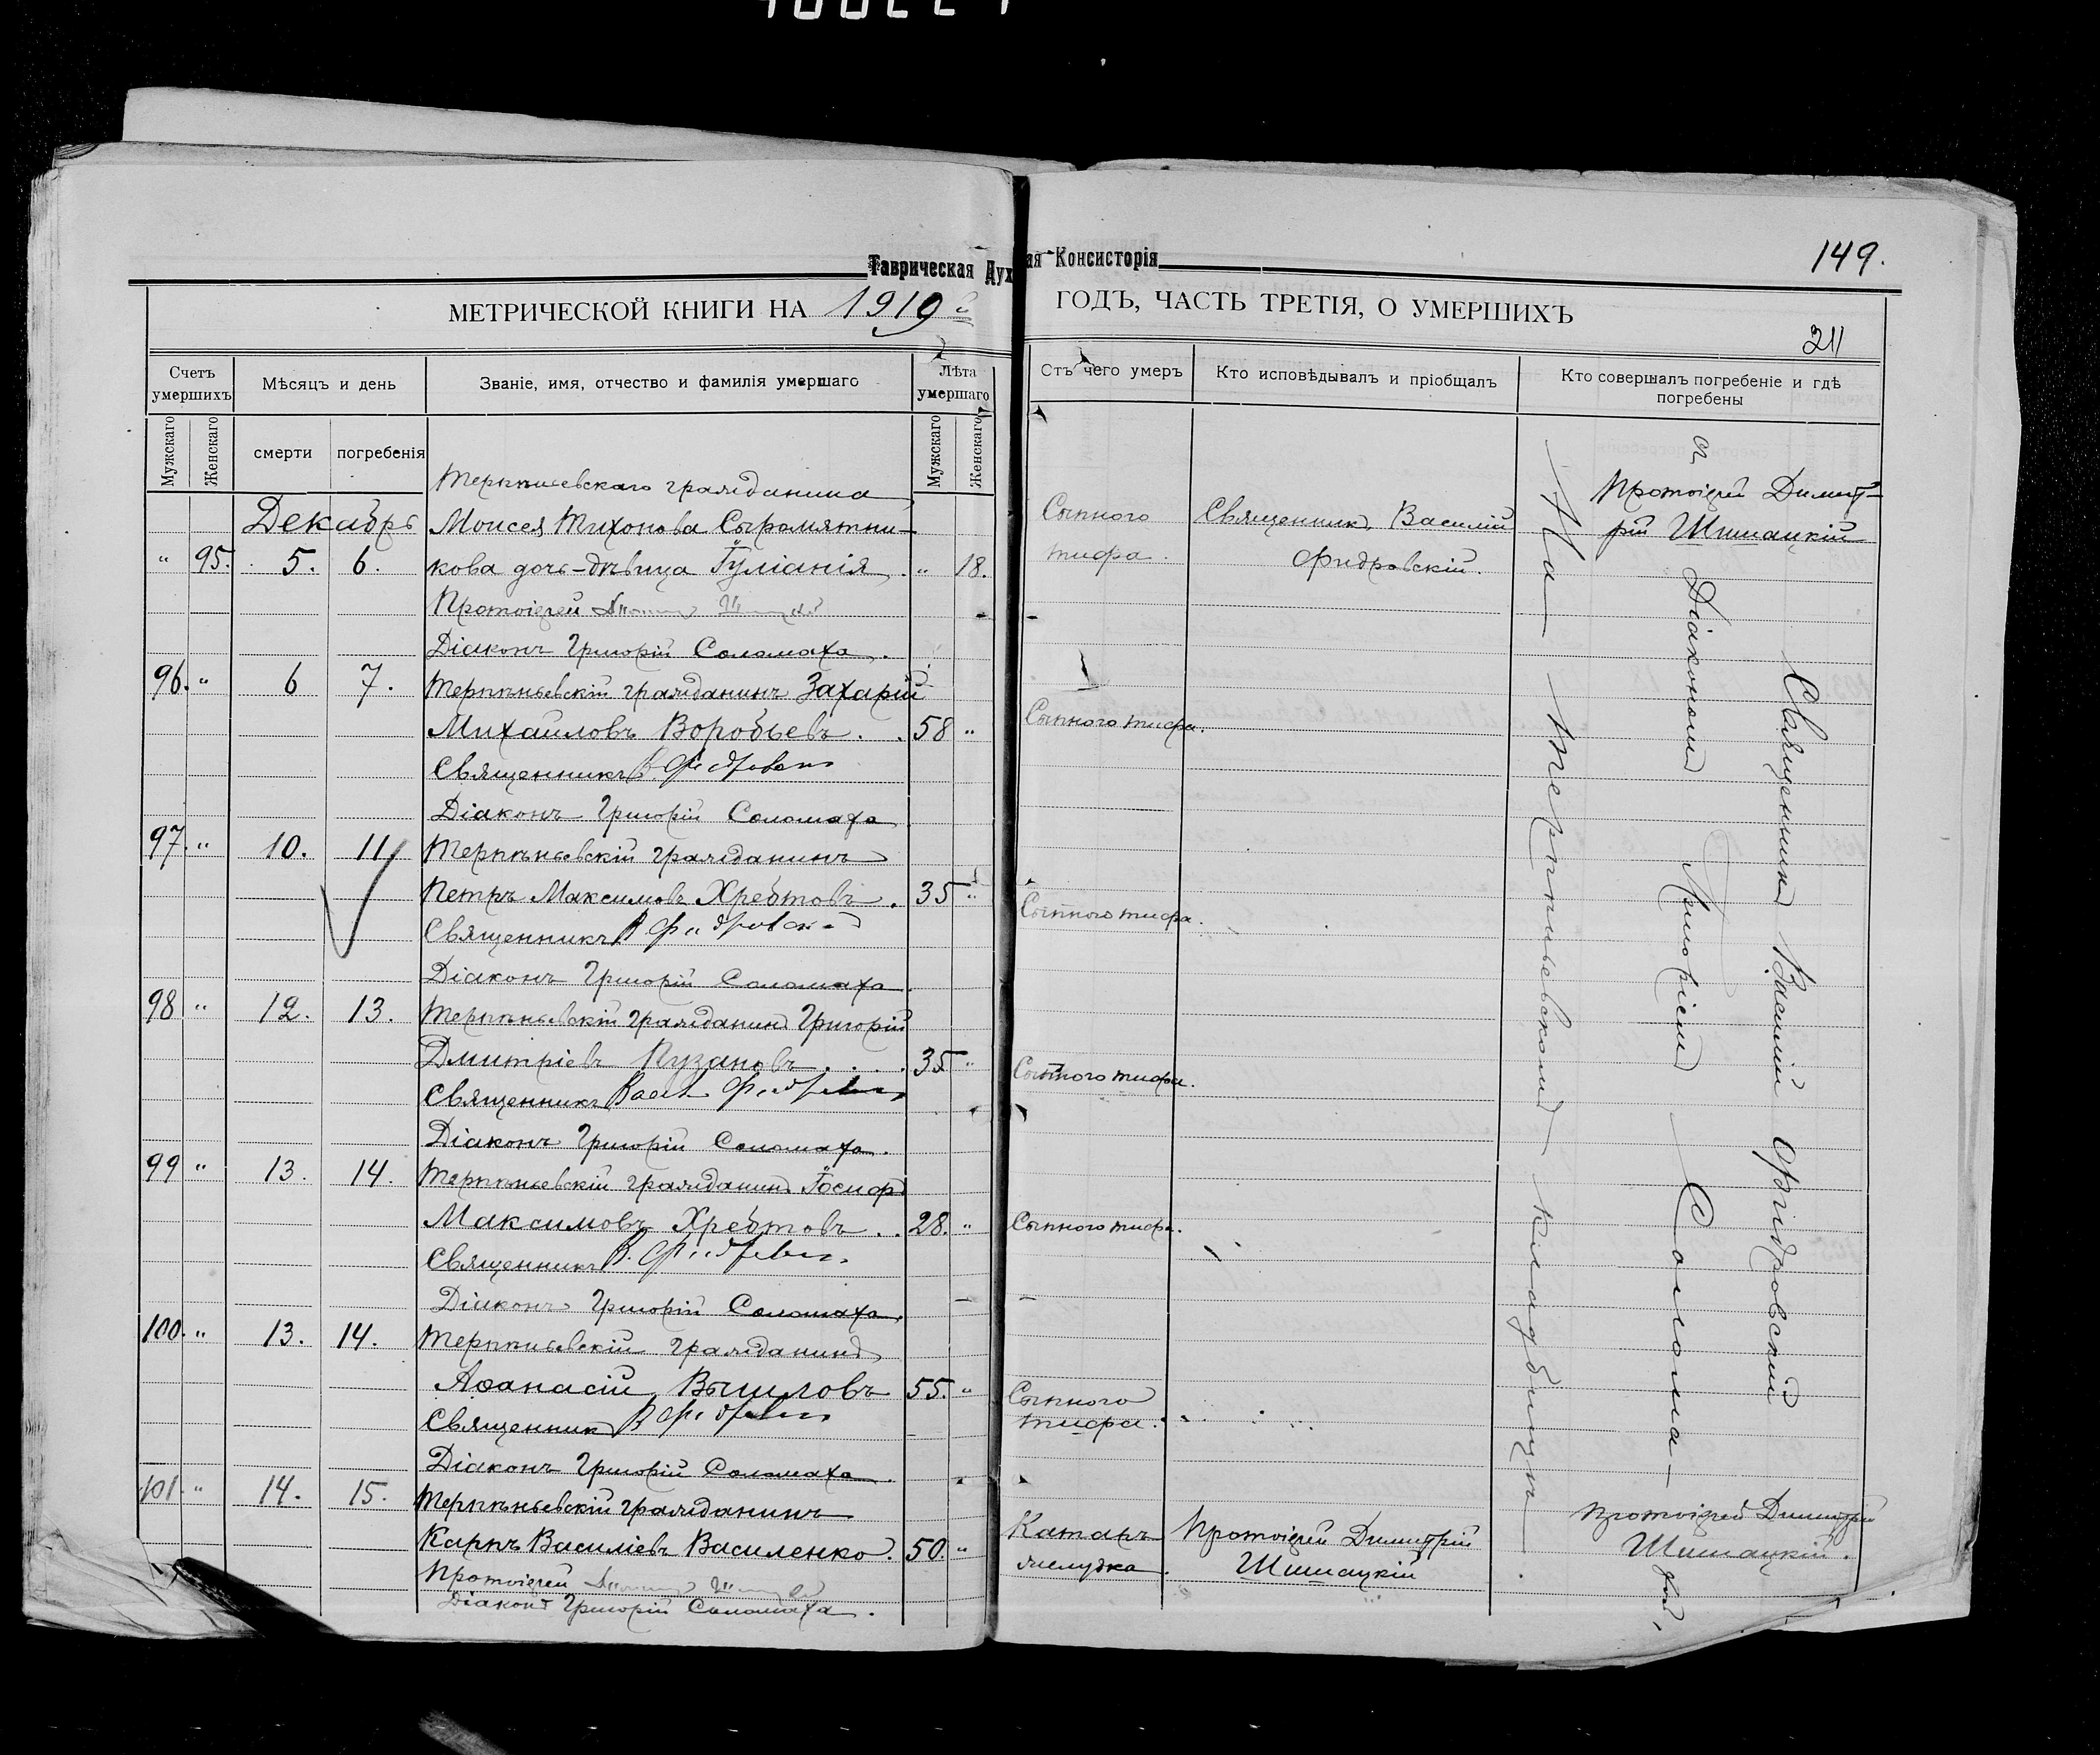 Таврическая Дух
ая Консисторія
149.
МЕТРИЧЕСКОЙ КНИГИ НА 1919
ГОДЪ, ЧАСТЬ ТРЕТІЯ, О УМЕРШИХЪ
211
Счетъ умершихъ
Мѣсяцъ и день
Званіе, имя, отчество и фамилія умершаго
Лѣта умершаго
Отъ чего умеръ
Кто исповѣдывалъ и пріобщалъ
Кто совершалъ погребеніе и гдѣ погребены
Мужскаго
Женскаго
смерти
погребенія
Мужскаго
Женскаго
Терпѣньевскаго гражданина
Декабрь Моисея Тихонова Сыромятни-
" 95. 5. 6. кова дочь-дѣвица Іуліанія . " 18.
Сыпного тифа.
Священникъ Василій Фидровскій.
Протоіерей Димит-
рій Шишацкій
Протоіерей
Діаконъ Григорій Соломаха.
96. " 6 7. Терпѣньевскій гражданинъ Захарій
Михаиловъ Воробьевъ. . 58 " Сыпного тифа.
Священникъ В.
Діаконъ Григорій Соломаха
97. " 10. 11 Терпѣньевскій гражданинъ
Петръ Максимовъ Хребтовъ. 35 " Сыпного тифа.
Священникъ В
Діаконъ Григорій Соломаха
98 " 12. 13. Терпѣньевскій гражданинъ Григорій
Дмитріевъ Пузановъ . . . . 35 " Сыпного тифа.
Священникъ
Діаконъ Григорій Соломаха.
99 " 13. 14. Терпѣньевскій гражданинъ Іосифъ
Максимовъ Хребтовъ . . 28. " Сыпного тифа.
Священникъ В.
Діаконъ Григорій Соломаха.
100. " 13. 14. Терпѣньевскій гражданинъ
Аѳанасій Вышловъ 55. " Сыпного
тифа.
Священникъ В
Діаконъ Григорій Соломаха.
101. " 14. 15. Терпѣньевскій гражданинъ
Карпъ Василіевъ Василенко. 50. "
Катаръ
желудка.
Протоіерей Димитрій
Шишацкій
Протоіерей Димитрій
Шишацкій.
Протоіерей
Діаконъ Григорій Соломаха.
На Терпѣньевскомъ кладбищѣ.
съ Діакономъ Григоріемъ Солома-
хой,
Священникъ Василій Фидровскій